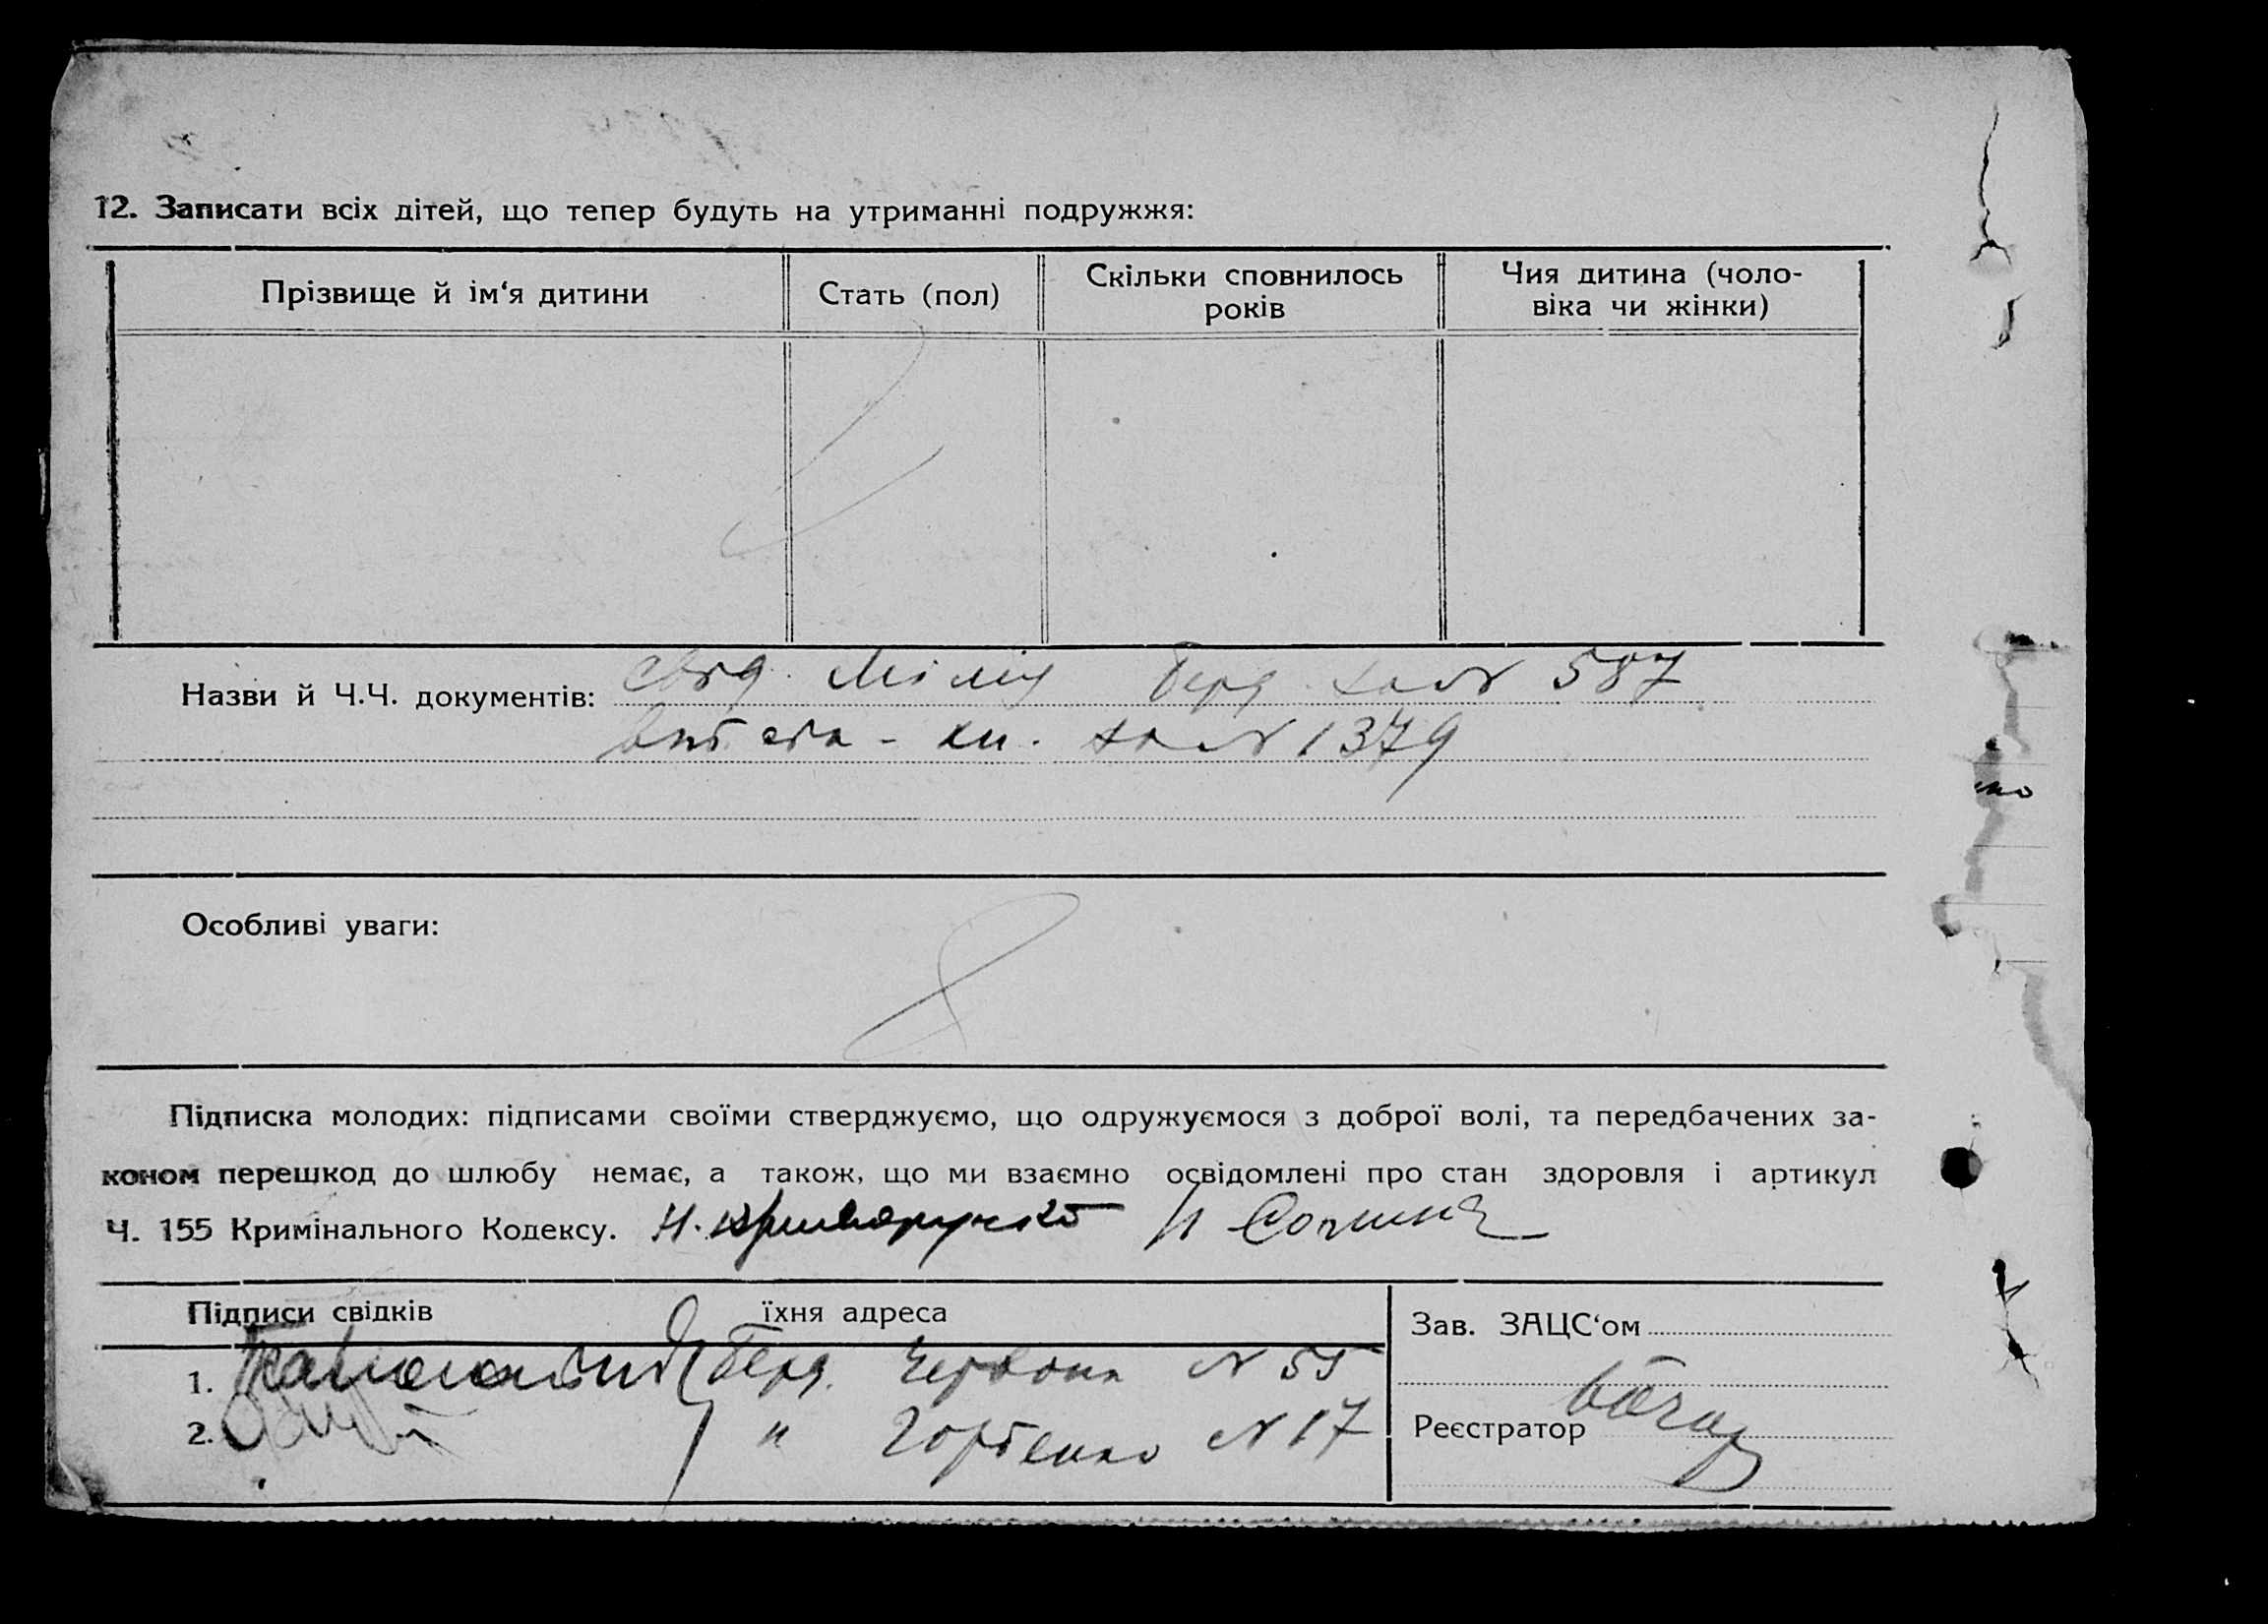 12. Записати всіх дітей, що тепер будуть на утриманні подружжя:
Прізвище й ім‘я дитини
Стать (пол)
Скільки сповнилось
років
Чия дитина (чоло-
віка чи жінки)
Назви й Ч.Ч. документів: Берд. за № 587
кн. за № 1379
Особливі уваги:
Підписка молодих: підписами своїми стверджуємо, що одружуємося з доброї волі, та передбачених за-
коном перешкод до шлюбу немає, а також, що ми взаємно освідомлені про стан здоровля і артикул
Ч. 155 Кримінального Кодексу. Н.
Підписи свідків їхня адреса
1. Берд. Червона № 55
2. " Горбенко № 17
Зав. ЗАЦС‘ом
Реєстратор